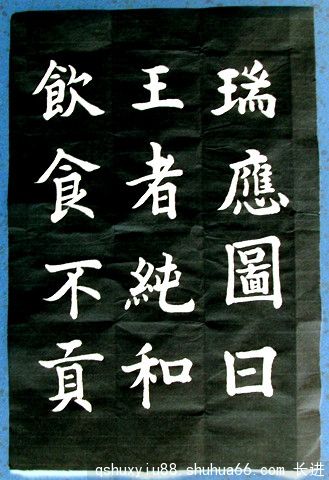 瑞應圖曰
王者純和
飲食不貢
qshuxyju88 shuhua66.com 长进